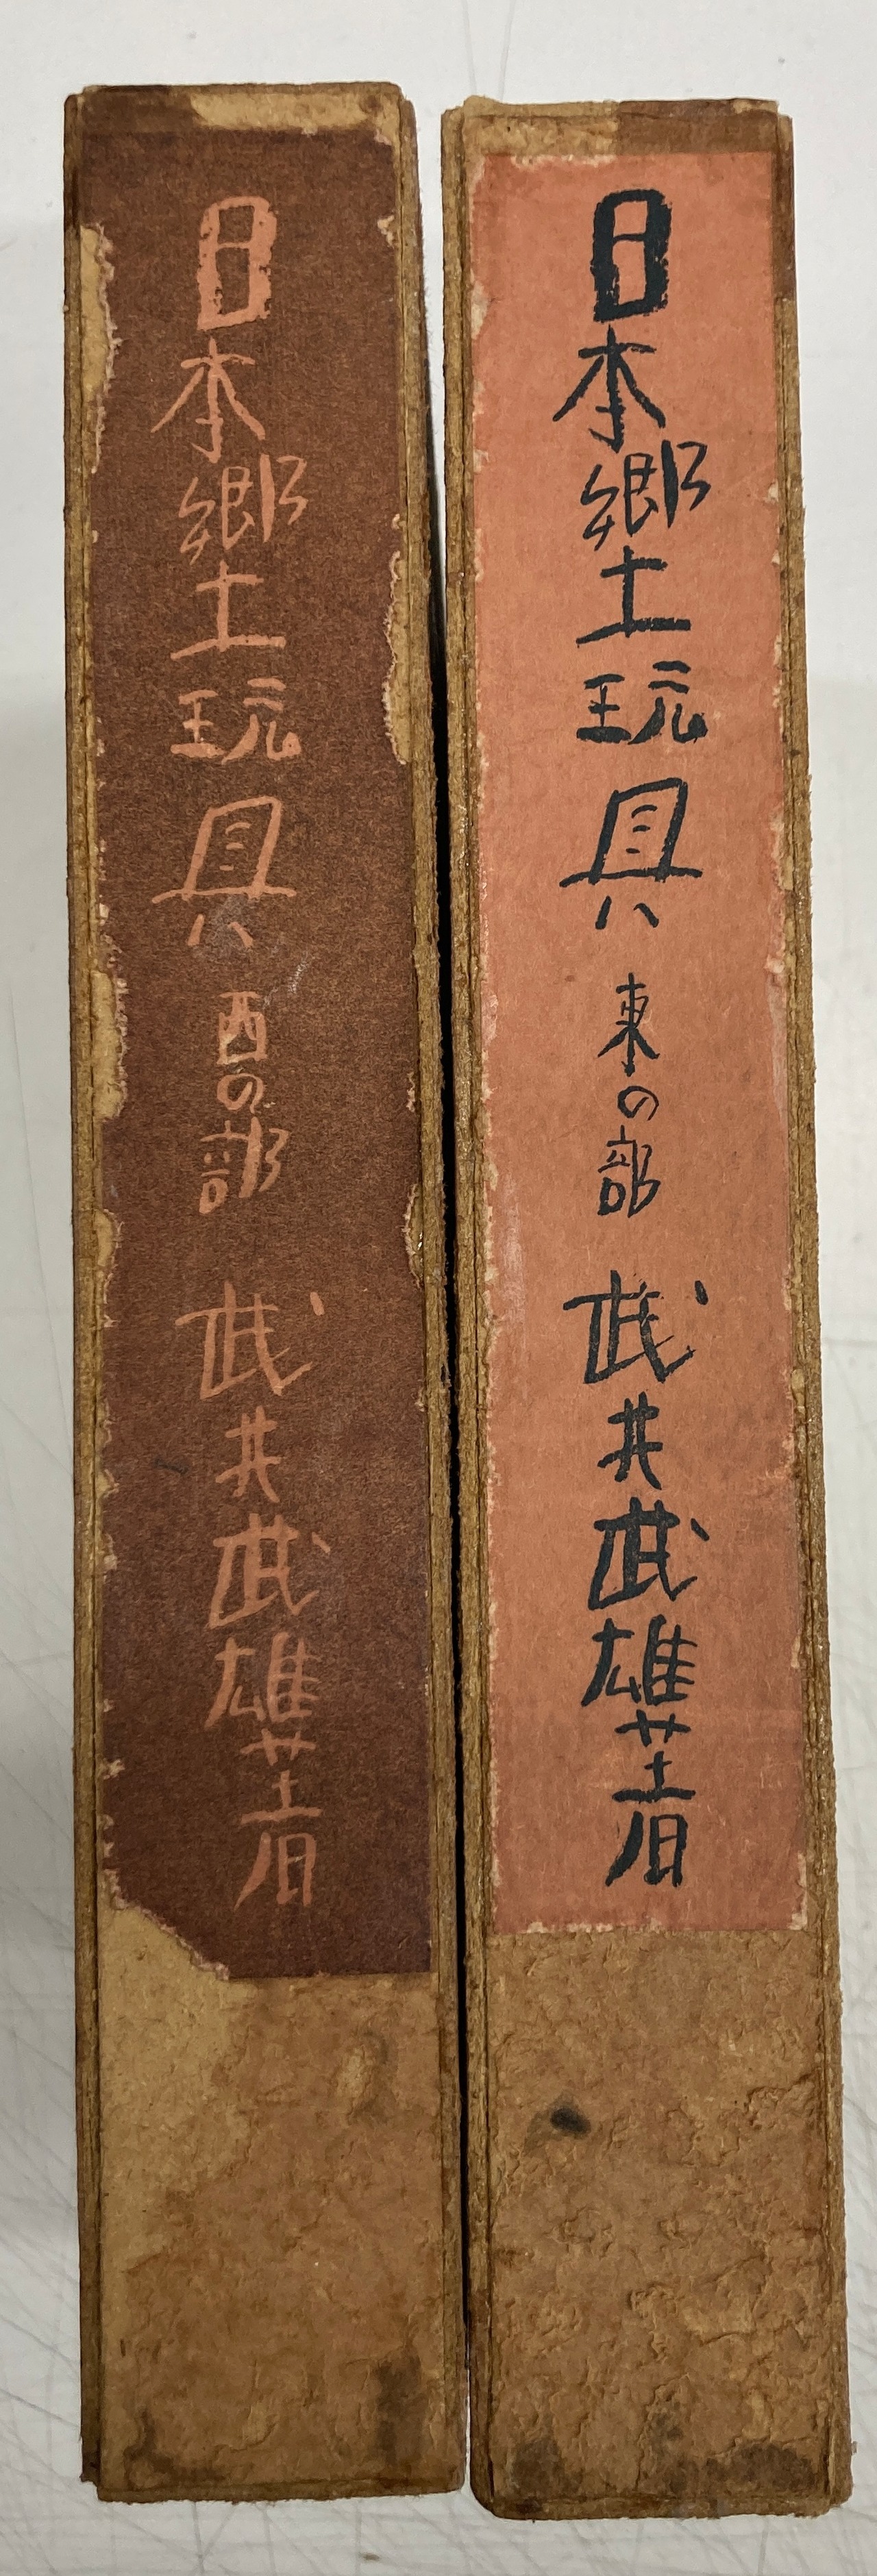 日本郷土玩具 東の部 武井武雄著
日本郷土玩具 西の部 武井武雄著